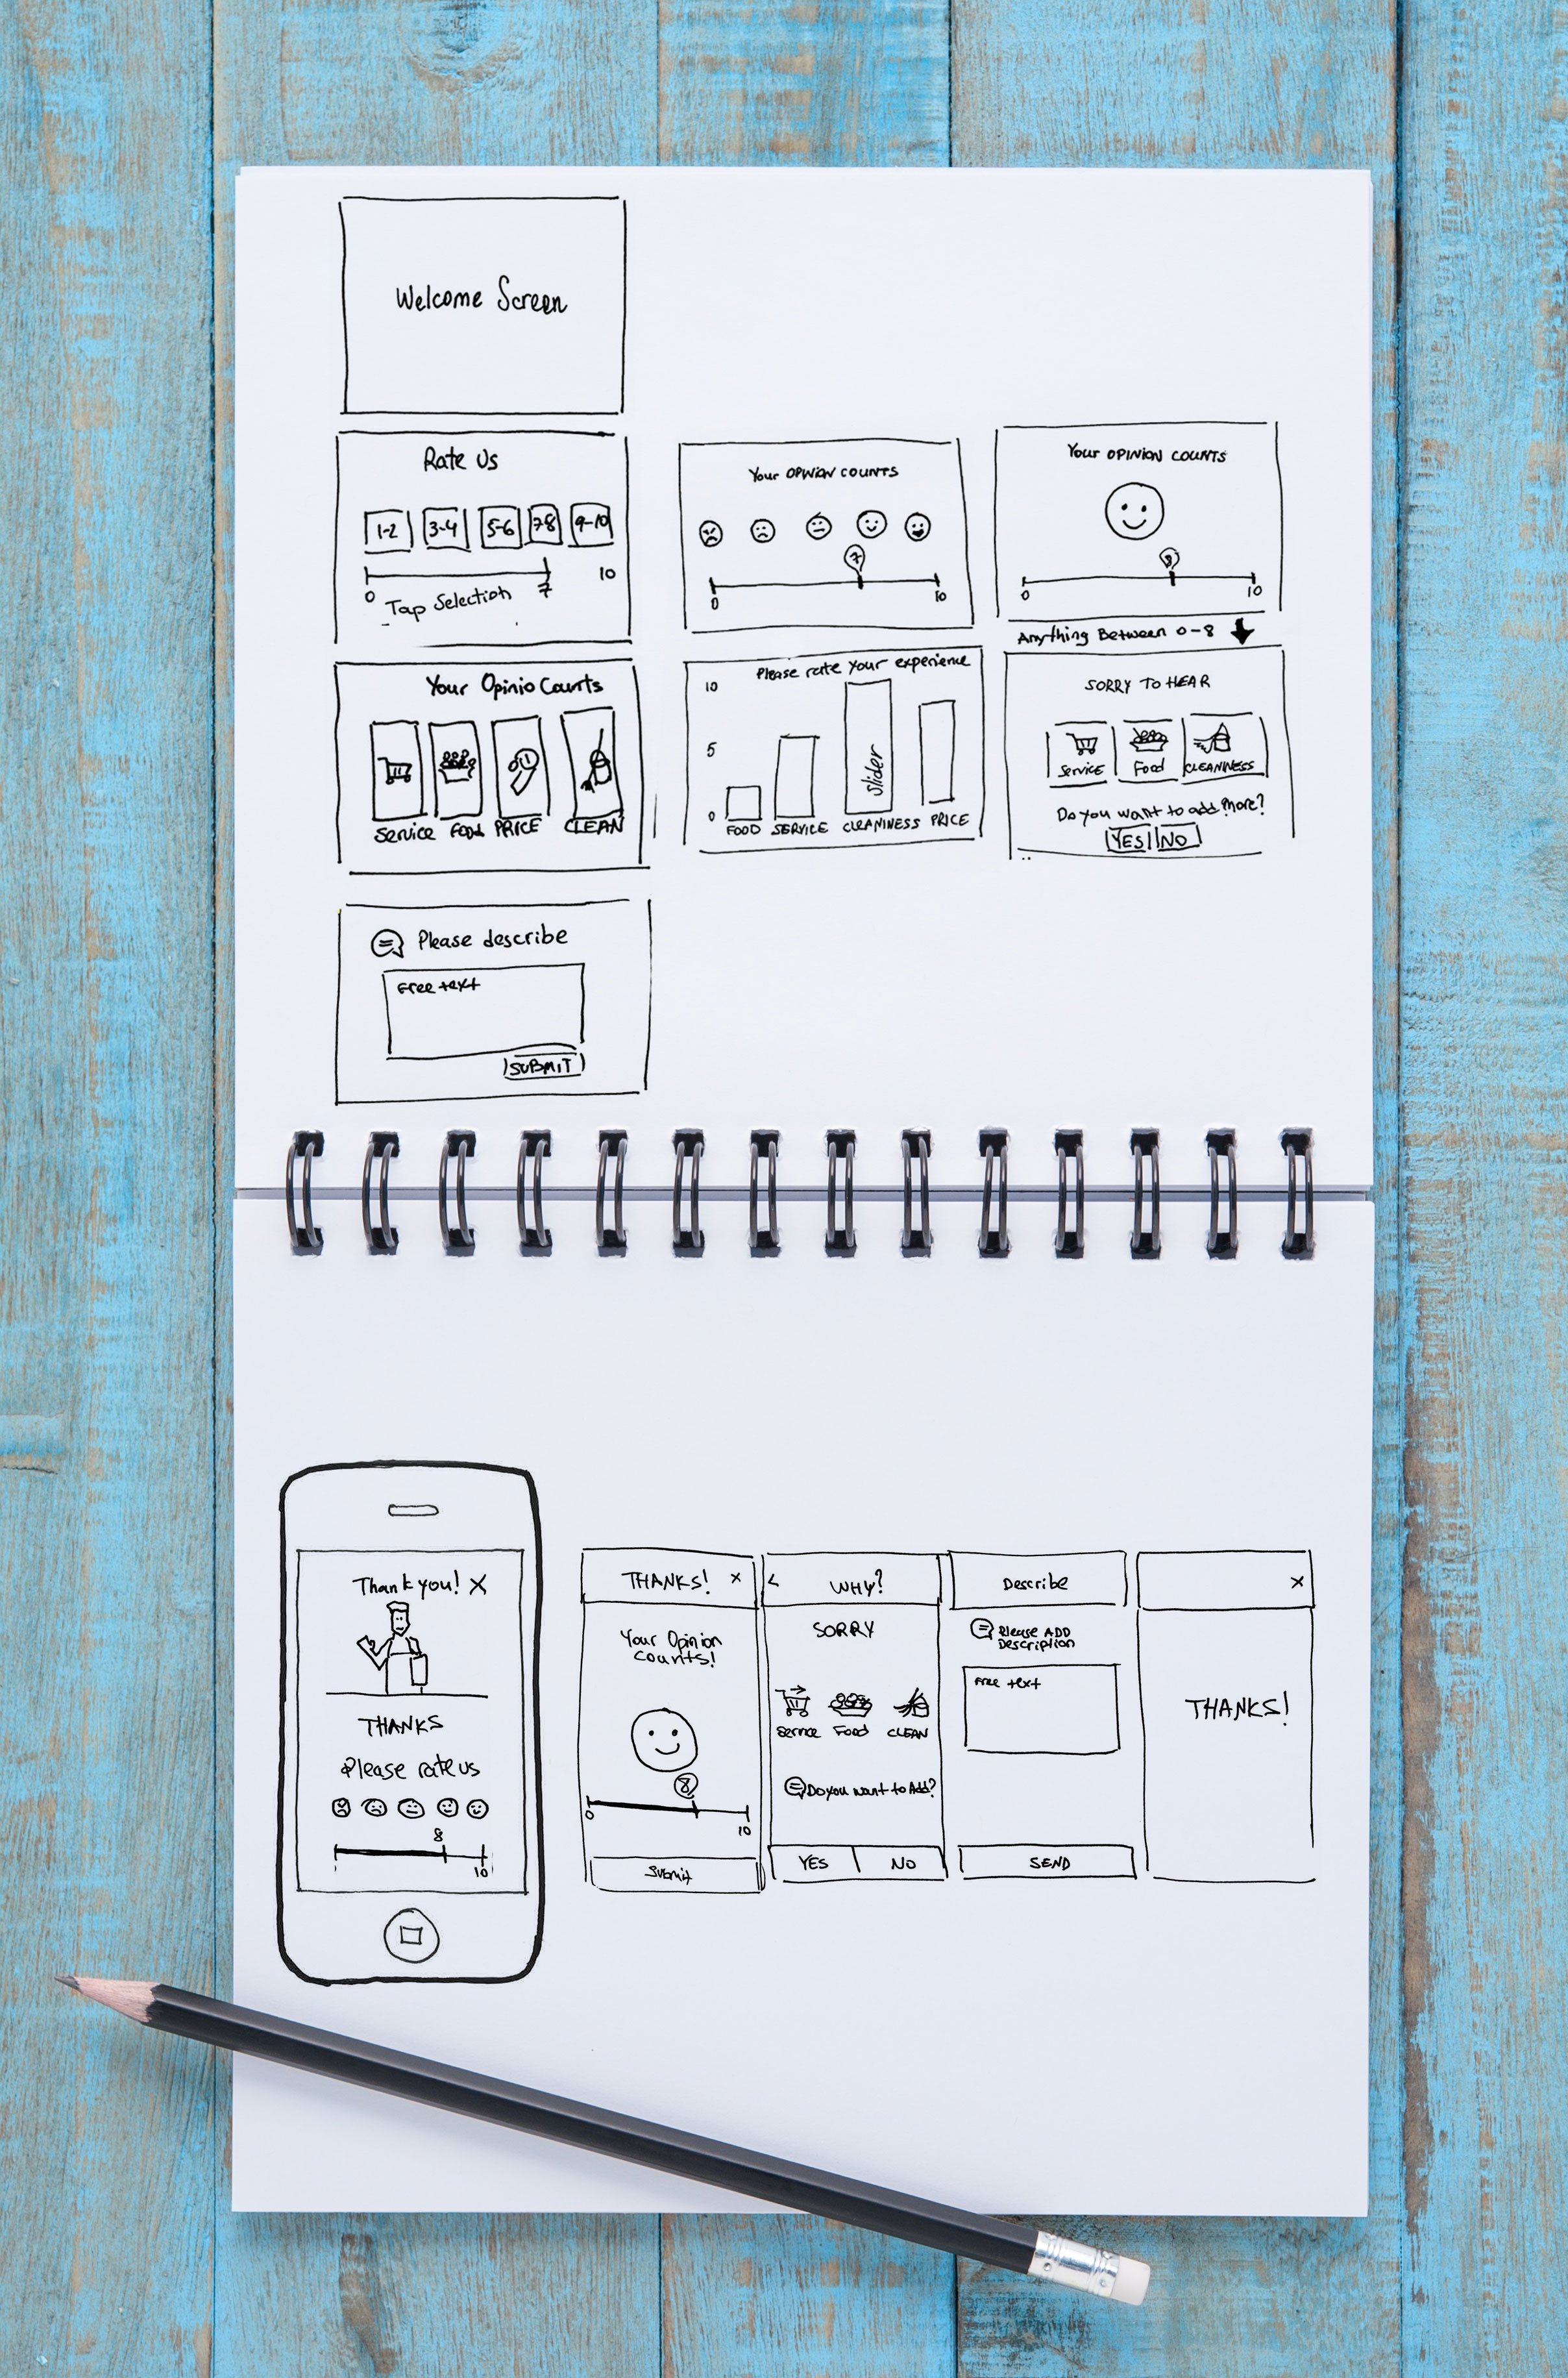 Welcome Screen
Rate Us
1-2 3-4 5-6 7-8 9-10
0 7 10
Tap Selection
Your OPINION COUNTS
7
0 10
Your OPINION COUNTS
0 10
Anything Between 0-8
Your Opinio Counts
Service Food PRICE CLEAN
Please rate your experience
10
5
0
slider
FOOD SERVICE CLEANINESS PRICE
SORRY TO HEAR
Service Food CLEANINESS
Do you want to add more?
YES NO
Please describe
Free text
SUBMIT
Thank you! X
THANKS
Please rate us
8
10
THANKS! X
Your Opinion
counts!
8
0 10
Submit
< WHY?
SORRY
Service Food CLEAN
Do you want to Add?
YES NO
Describe
Please ADD
Description
Free text
SEND
X
THANKS!